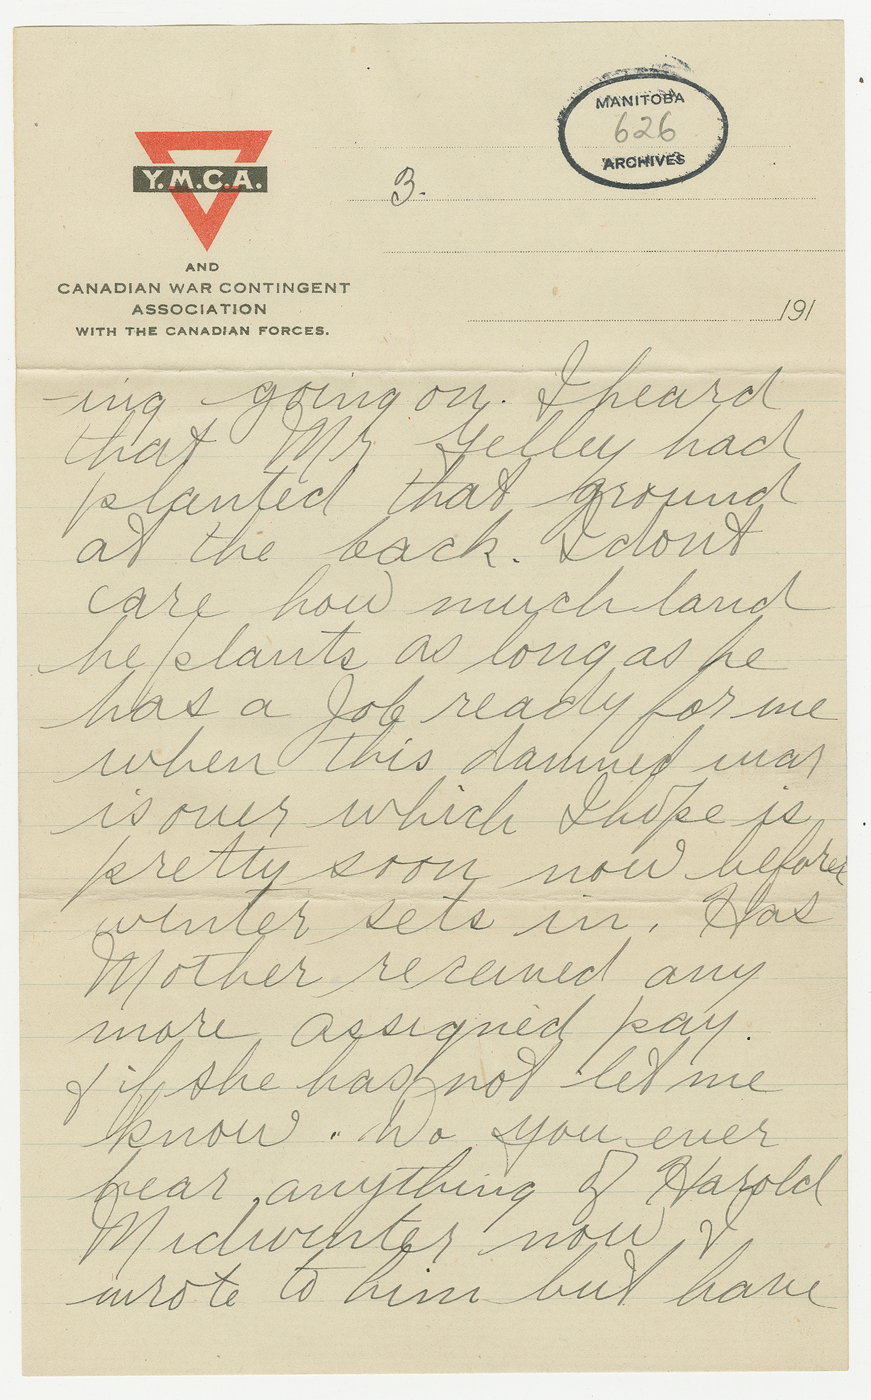 MANITOBA
626
ARCHIVES
Y.M.C.A.
3.
AND
CANADIAN WAR CONTINGENT
ASSOCIATION
WITH THE CANADIAN FORCES.
191
-ing going on. I heard
that Mr Yelley had
planted that ground
at the back. I dont
care how much land
he plants as long as he
has a Job ready for me
when this damned war
is over which I hope is
pretty soon now before
winter sets in. Has
Mother received any
more assigned pay.
& if she has not let me
know. Do you ever
hear anything of Harold
Midwinter now I
wrote to him but have